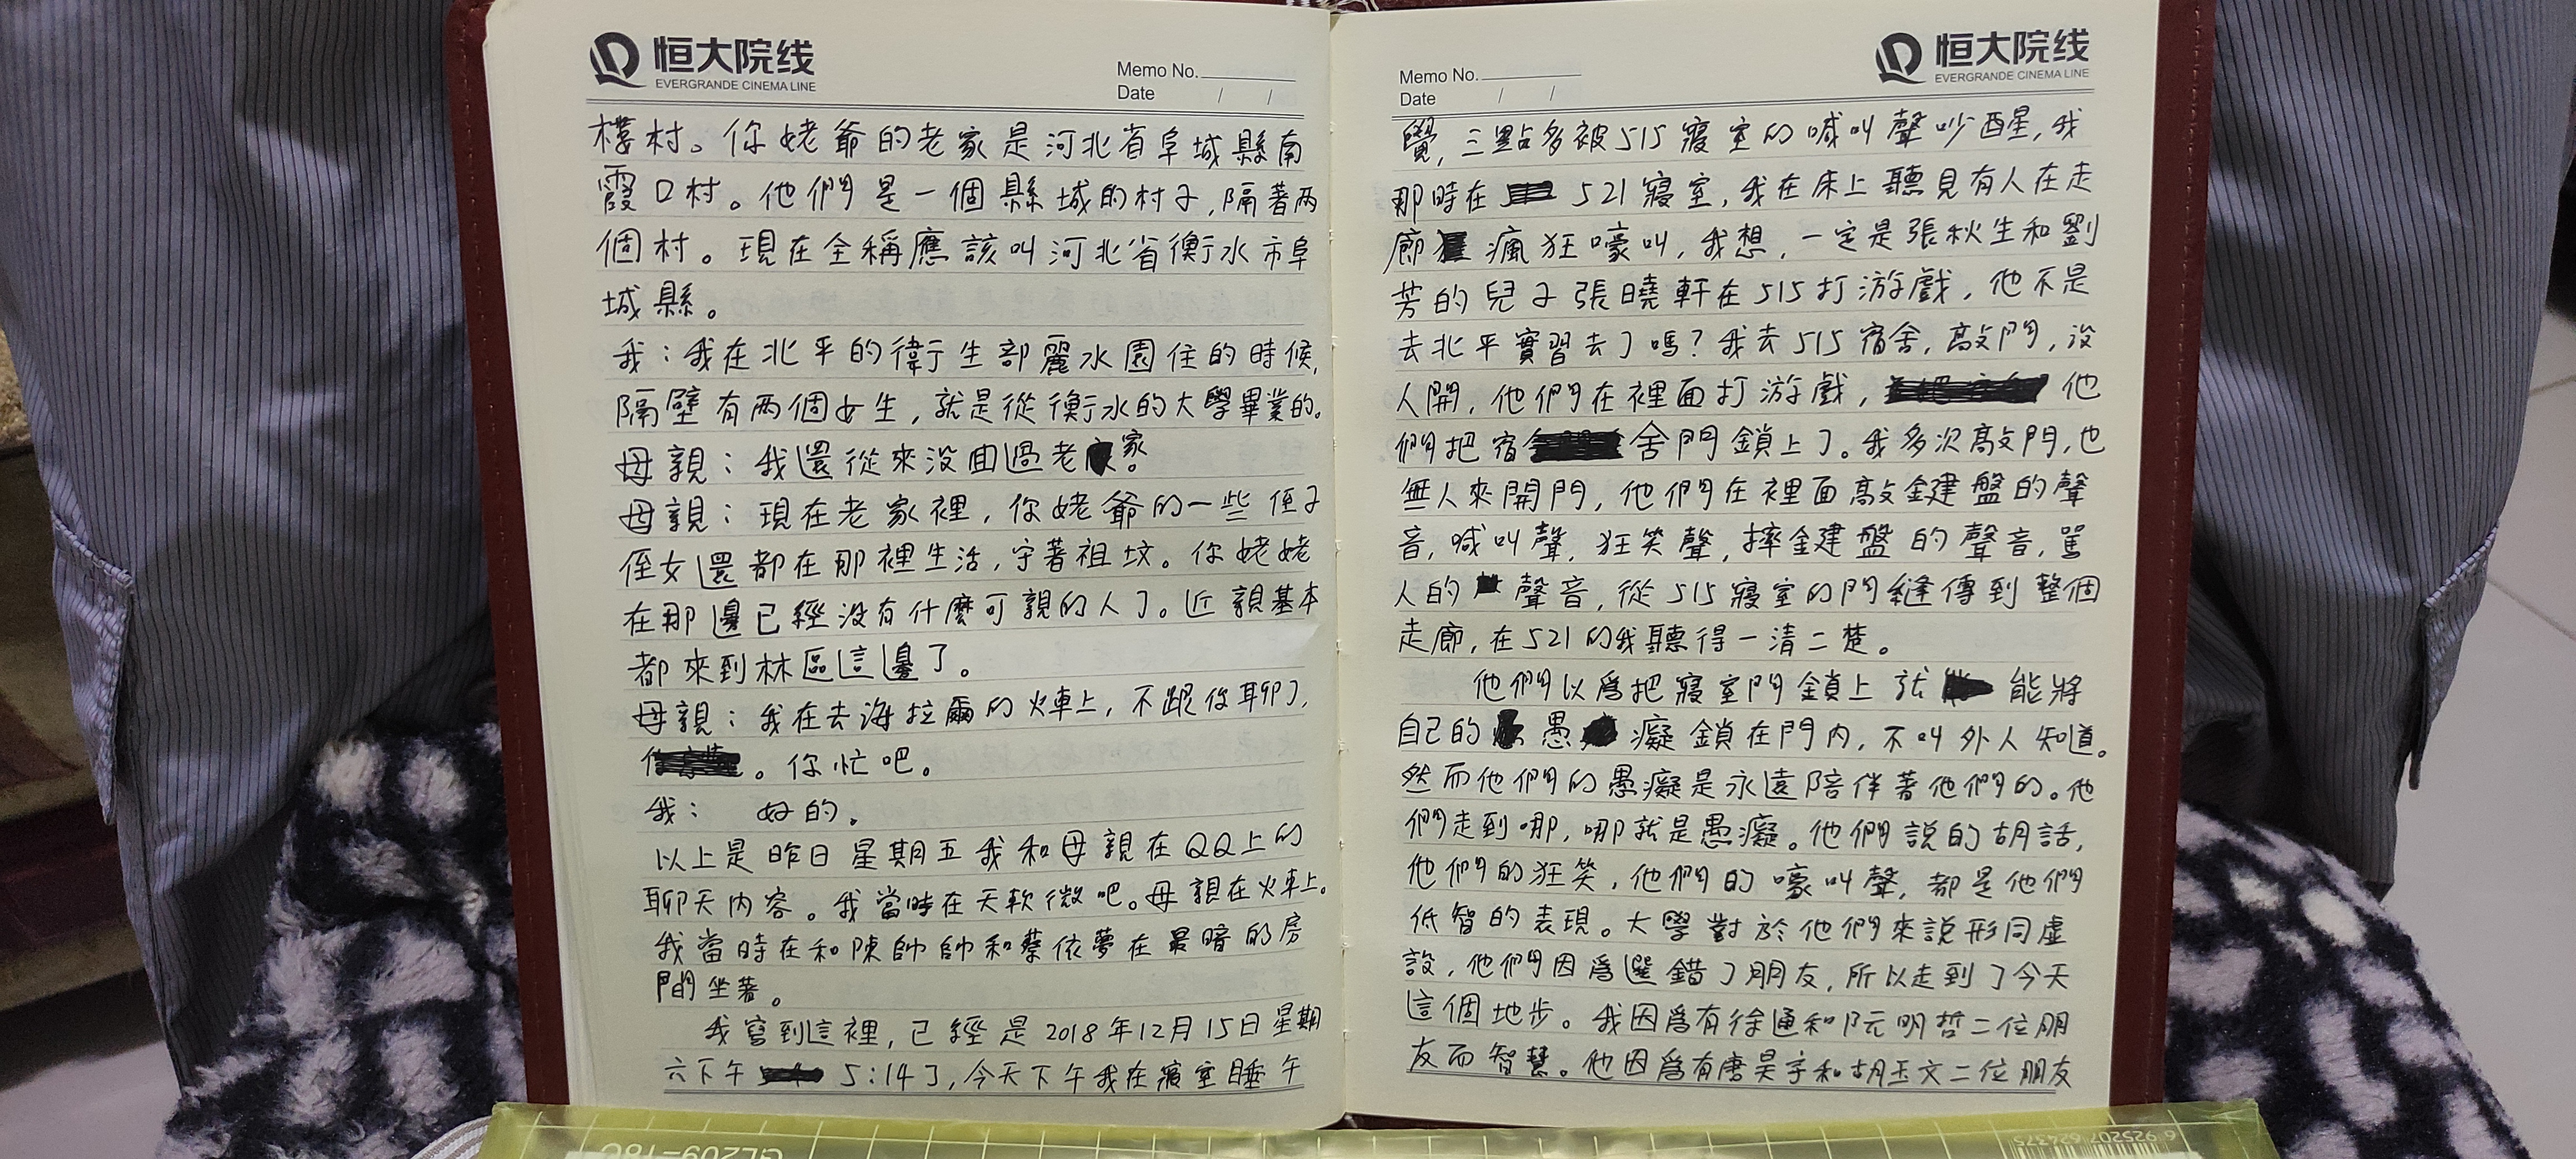 恒大院线
EVERGRANDE CINEMA LINE
Memo No.
Date / /
樓村。你姥爺的老家是河北省阜城縣南
霞口村。他們是一個縣城的村子,隔著两
個村。現在全稱應該叫河北省衡水市阜
城縣。
我:我在北平的衛生部麗水園住的時候,
隔壁有两個女生,就是從衡水的大學畢業的。
母親:我還從來没囬過老家。
母親:現在老家裡,你姥爺的一些侄子
侄女還都在那裡生活,守著祖坟。你姥姥
在那邊已經没有什麼可親的人了。近親基本
都來到林區這邊了。
母親:我在去海拉爾的火車上,不跟你聊了,
。你忙吧。
我: 好的。
以上是昨日星期五我和母親在QQ上的
聊天内容。我當時在天软微吧。母親在火車上。
我當時在和陳帥帥和蔡依夢在最暗的房
間坐著。
我寫到這裡,已經是2018年12月15日星期
六下午 5:14了,今天下午我在寢室睡午
恒大院线
EVERGRANDE CINEMA LINE
Memo No.
Date / /
覺,三點多被515寢室的喊叫聲吵醒,我
那時在 521寢室,我在床上聽見有人在走
廊 瘋狂嚎叫,我想,一定是張秋生和劉
芳的兒子張曉軒在515打游戲,他不是
去北平實習去了嗎?我去515宿舍,敲門,没
人開,他們在裡面打游戲, 他
們把宿 舍門鎖上了。我多次敲門,也
無人來開門,他們在裡面敲鍵盤的聲
音,喊叫聲,狂笑聲,摔鍵盤的聲音,罵
人的 聲音,從515寢室的門縫傳到整個
走廊,在521的我聽得一清二楚。
他們以爲把寢室門鎖上就 能將
自己的 愚 癡鎖在門内,不叫外人知道。
然而他們的愚癡是永遠陪伴著他們的。他
們走到哪,哪就是愚癡。他們說的胡話,
他們的狂笑,他們的嚎叫聲,都是他們
低智的表現。大學對於他們來說形同虚
設,他們因爲選錯了朋友,所以走到了今天
這個地步。我因爲有徐通和阮明哲二位朋
友而智慧。他因爲有唐昊宇和胡玉文二位朋友